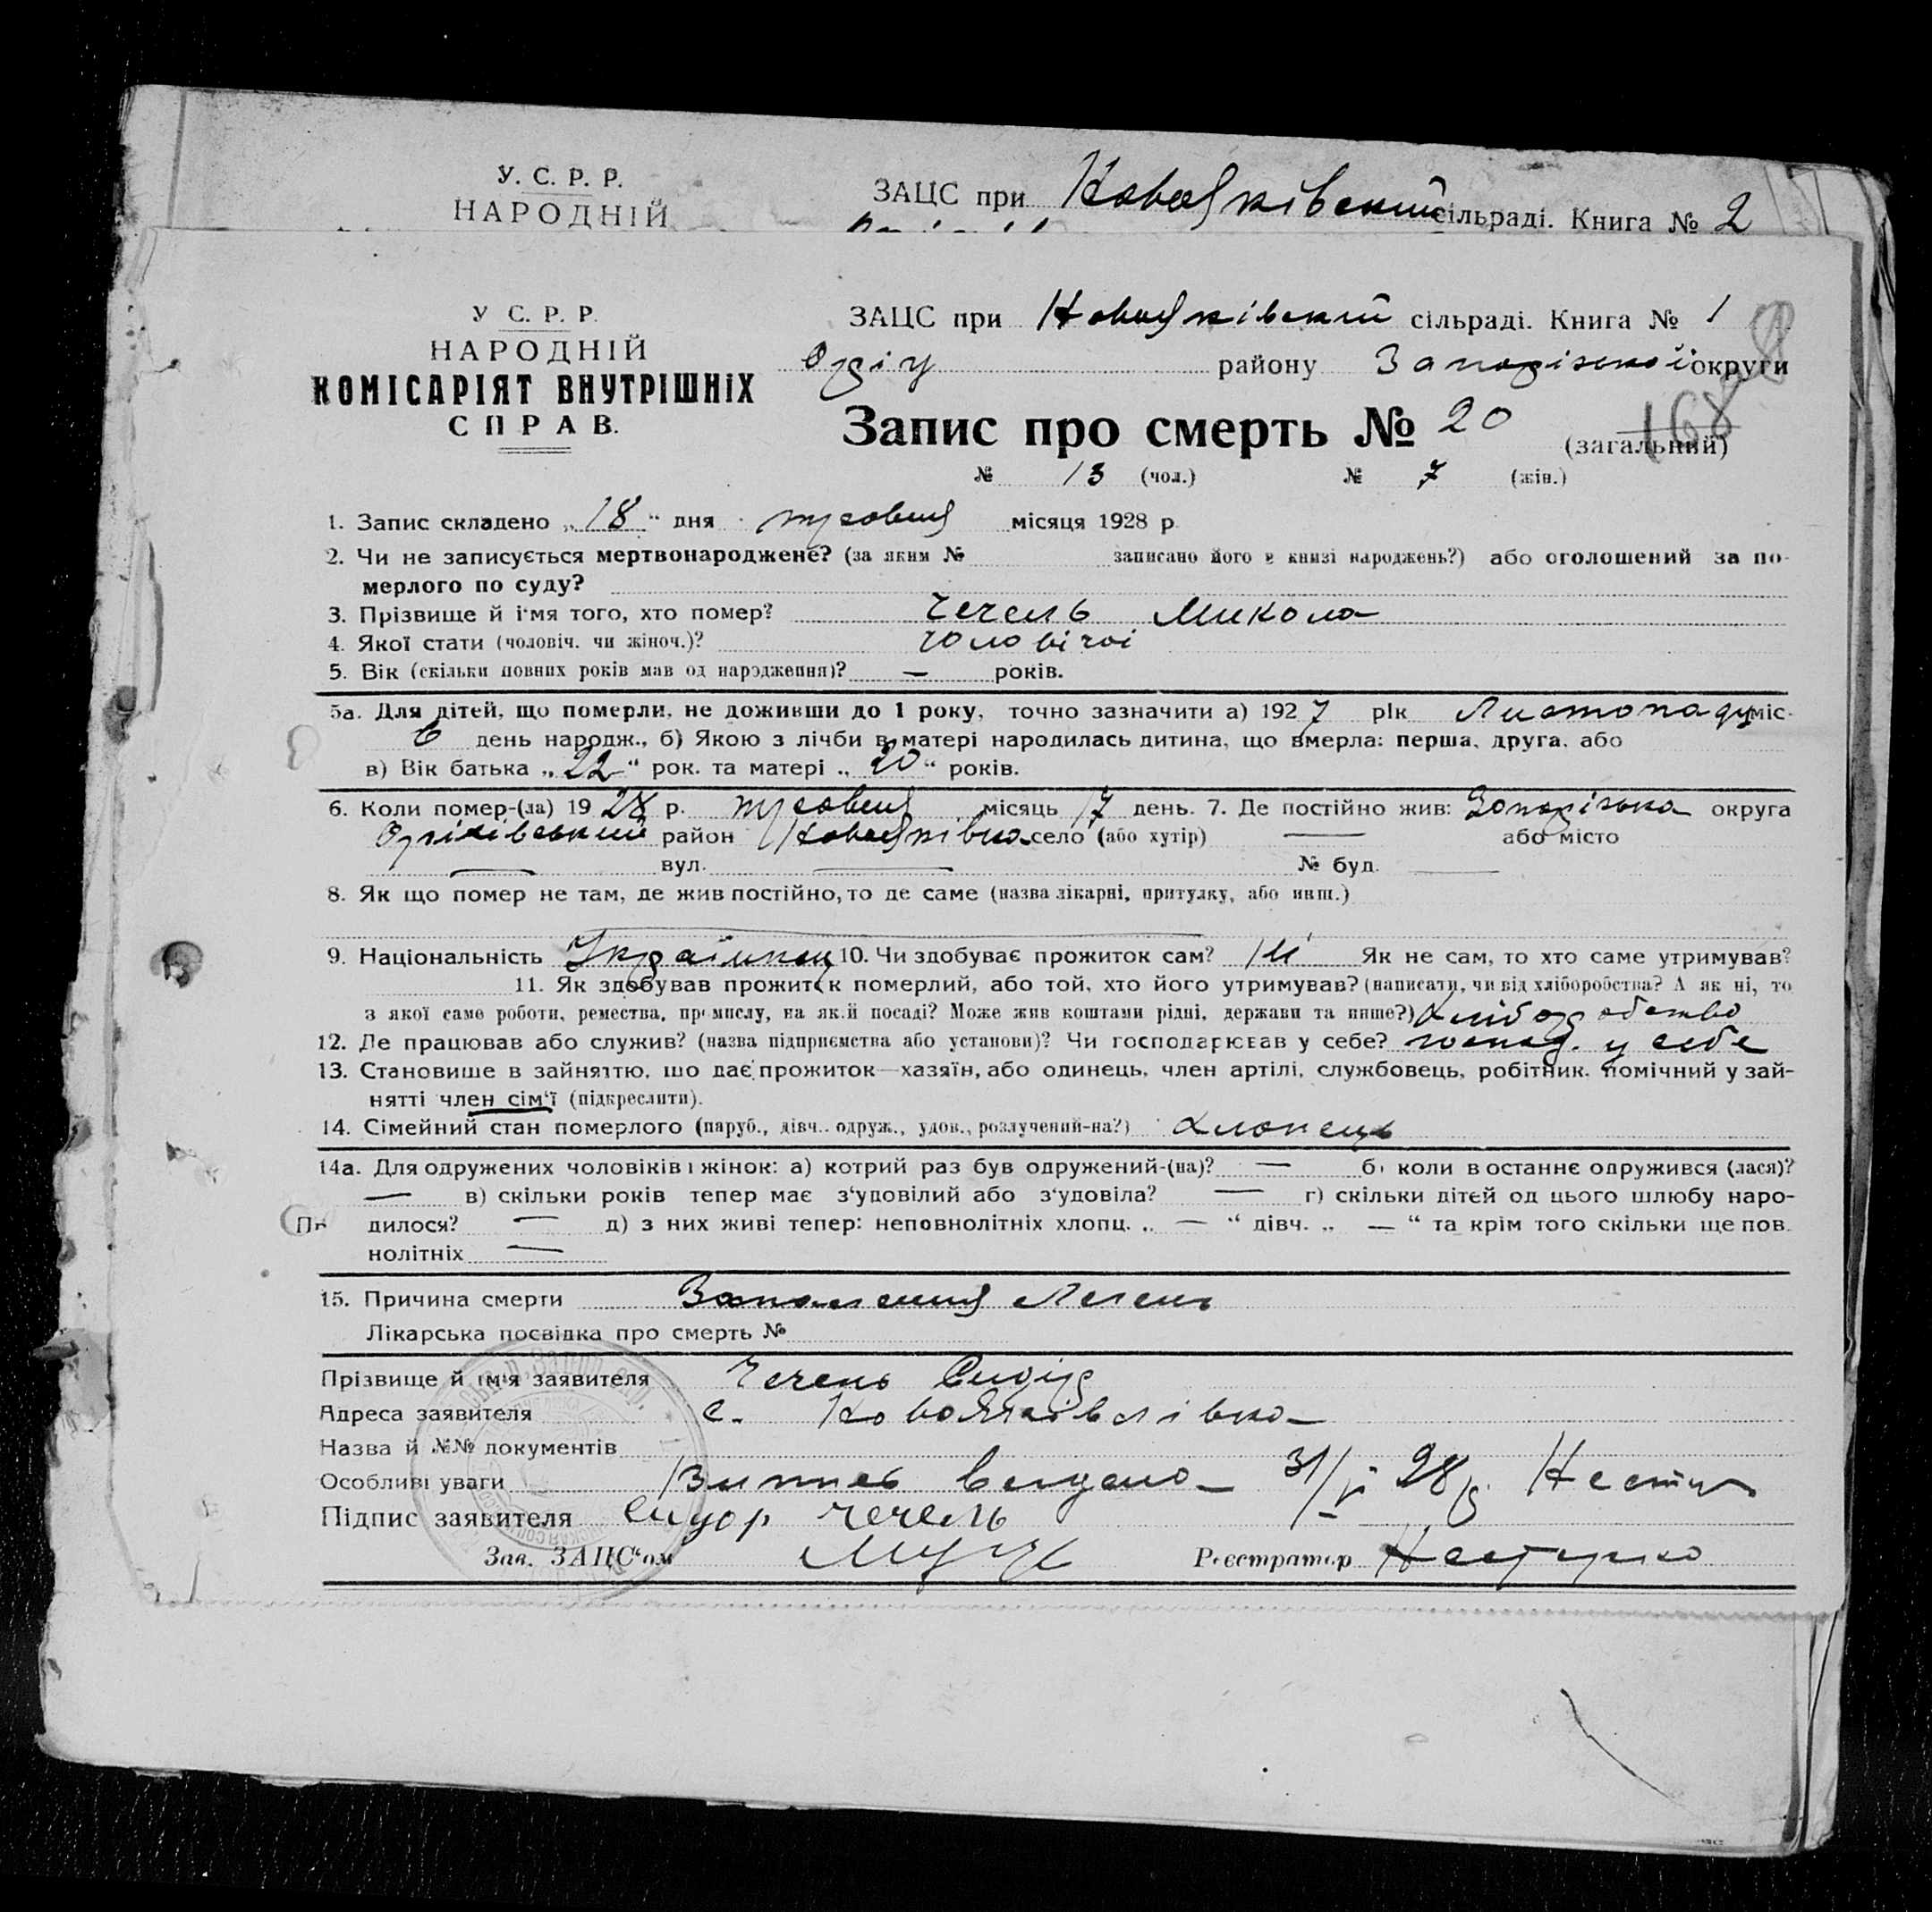 У. С. Р. Р.
НАРОДНІЙ
ЗАЦС при сільраді. Книга № 2
У С. Р. Р.
НАРОДНІЙ
КОМІСАРІЯТ ВНУТРІШНІХ
СПРАВ.
ЗАЦС при сільраді. Книга № 1
району Запорізької округи
Запис про смерть № 20 (загальний)
168
№ 13 (чол.) № 7 (жін.)
1. Запис складено „18“ дня травня місяця 1928 р.
2. Чи не записується мертвонароджене? (за яким № записано його в книзі народжень?) або оголошений за по-
мерлого по суду?
3. Прізвище й ім'я того, хто помер? Чечель Микола
4. Якої стати (чоловіч. чи жіноч.)? чоловічої
5. Вік (скільки повних років мав од народження)? — років.
5а. Для дітей, що померли, не доживши до 1 року, точно зазначити а) 1927 рік Листопаду міс.
6 день народж., б) Якою з лічби в матері народилась дитина, що вмерла: перша, друга, або
в) Вік батька „22“ рок. та матері „20“ років.
6. Коли помер-(ла) 1928 р. травня місяць 17 день. 7. Де постійно жив: Запорізька округа
Оріхівський район село (або хутір) — або місто
— вул. — № буд. —
8. Як що помер не там, де жив постійно, то де саме (назва лікарні, притулку, або инш.)
9. Національність Українець 10. Чи здобуває прожиток сам? Ні Як не сам, то хто саме утримував?
11. Як здобував прожиток померлий, або той, хто його утримував? (написати, чи від хліборобства? А як ні, то
з якої саме роботи, ремества, промислу, на якій посаді? Може жив коштами рідні, держави та инше?) Хліборобство
12. Де працював або служив? (назва підприємства або установи)? Чи господарював у себе? господ. у себе
13. Становище в зайняттю, що дає прожиток—хазяїн, або одинець, член артілі, службовець, робітник, помічний у зай-
нятті член сім'ї (підкреслити).
14. Сімейний стан померлого (паруб., дівч., одруж., удов., розлучений-на?) хлопець
14а. Для одружених чоловіків і жінок: а) котрий раз був одружений-(на)? — б) коли в останнє одружився (лася)?
— в) скільки років тепер має з'удовілий або з'удовіла? — г) скільки дітей од цього шлюбу наро-
дилося? — д) з них живі тепер: неповнолітніх хлопц. „ — “ дівч. „ — “ та крім того скільки ще пов-
нолітніх —
15. Причина смерти Запалення Легень
Лікарська посвідка про смерть №
Прізвище й ім'я заявителя Чечель Сидір
Адреса заявителя с.
Назва й №№ документів
Особливі уваги Витяг видано 31/V 28 р.
Підпис заявителя Сидор Чечель
Зав. ЗАЦС'ом Реєстратор Нестерко